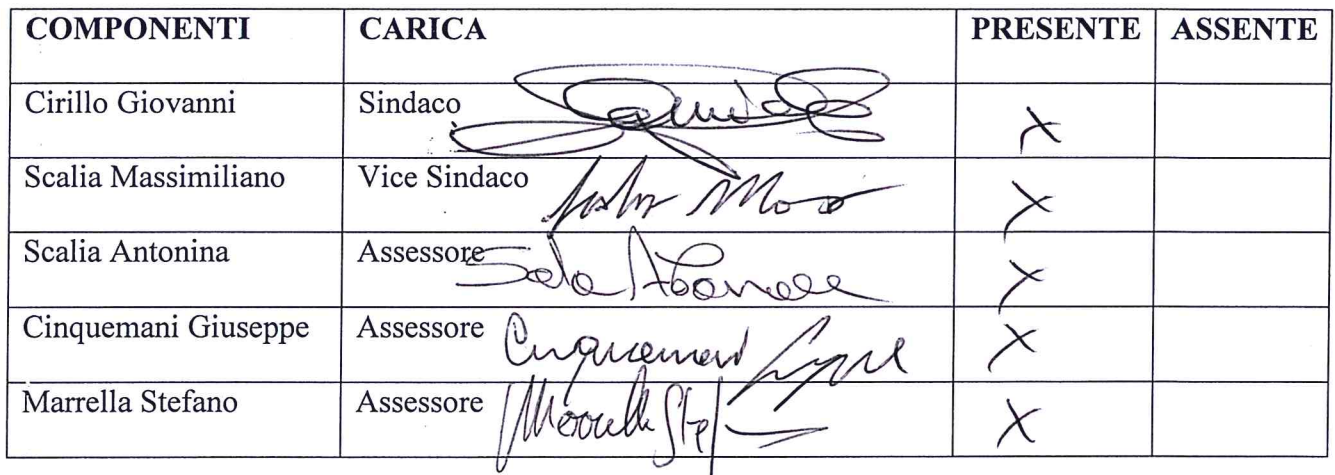 COMPONENTI CARICA PRESENTE ASSENTE
Cirillo Giovanni Sindaco X
Scalia Massimiliano Vice Sindaco X
Scalia Antonina Assessore X
Cinquemani Giuseppe Assessore Cinquemani X
Marrella Stefano Assessore X